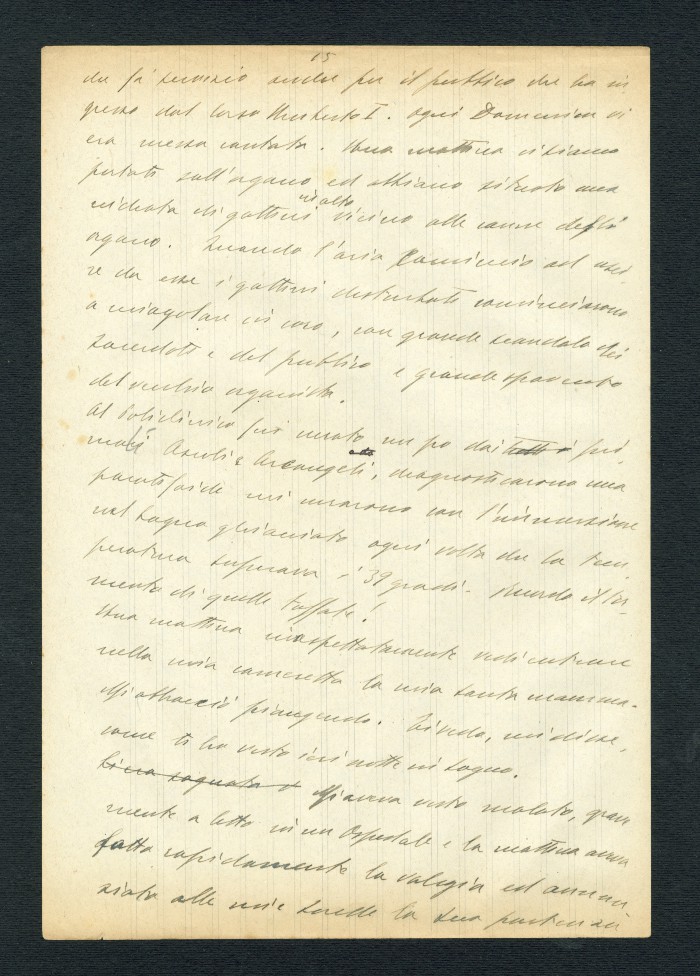 15
che fà servizio anche per il pubblico che ha in
gresso dal Corso Umberto I. Ogni Domenica vi
era messa cantata. Una mattina ci siamo
portati sull'organo ed abbiamo situato una
nidiata di gattini vicino alle canne dell'
organo. Quando l'aria cominciò ad usci
re da esse i gattini disturbati cominciarono
a miagolare in coro, con grande scandalo dei
Sacerdoti e del pubblico e grande spavento
del vecchio organista.
Al Policlinico fui curato un po dai
Ascoli e Arcangeli, diagnosticarono una
paratifoide mi curarono con l'immersione
nel bagno ghiacciato ogni volta che la tem
peratura superava i 39 gradi. Ricordo il tor-
mento di quelle tuffate!
Una mattina inaspettatamente vedi entrare
nella mia cameretta la mia santa mamma.
Mi abbracciò piangendo. Ti vedo, mi disse,
come ti ho visto ieri notte in sogno.
Mi aveva visto malato, grave
mente a letto in un Ospedale e la mattina aveva
fatto rapidamente la valigia ed annun
ziato alle mie sorelle la sua partenza